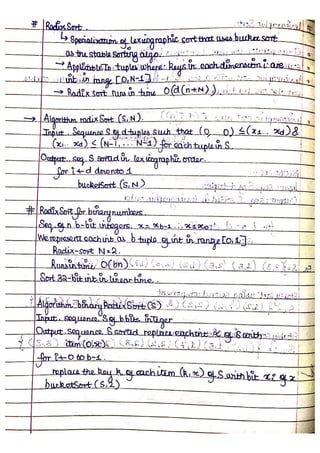 # Radix Sort.
↳ Specialization of lexicographic sort that uses bucket sort
as the stable sorting algo.
→ Applicable to tuples where keys in each dimension i are
int in range [0, N-1]
→ Radix sort runs in time O(d(n+N))
→ Algorithm radix Sort (S, N).
Input. Sequence S of d-tuples such that (0, 0) ≤ (x1.. xd) &
(x1.. xd) ≤ (N-1, ... N-1) for each tuple in S.
Output. seq. S sorted in lexicographic order.
for i ← d downto 1
bucketSort (S, N)
# RadixSort for binary numbers.
Seq. of n b-bit integers. x = xb-1 ... x1x0
We represent each int as b tuple of int in range [0, 1].
Radix-sort N=2.
Runs in time O(bn)
Sort 32-bit int in linear time.
Algorithm binary RadixSort (S)
Input: sequence S of b bits integer
Output. sequence S sorted replace each int x of S with
item (0, x)
for i ← 0 to b-1.
replace the key k of each item (k, x) of S with bit xi of x
bucketSort (S, 2)